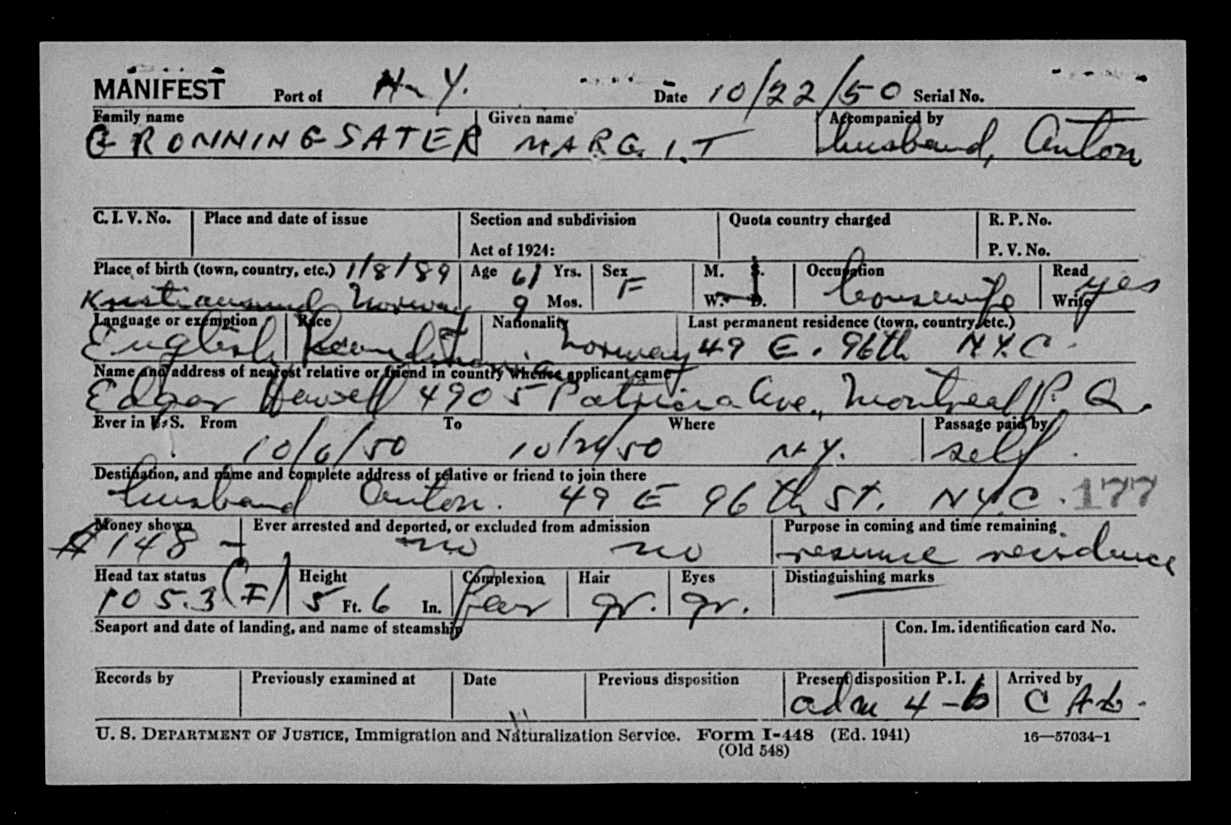 MANIFEST Port of N-Y. Date 10/22/50 Serial No.
Family name Given name Accompanied by
GRONNINGSATER MARGIT husband, Anton
C. I. V. No. Place and date of issue Section and subdivision Quota country charged R. P. No.
Act of 1924: P. V. No.
Place of birth (town, country, etc.) 1/8/89 Age 61 Yrs. Sex F M. S. Occupation Read yes
Kristiansund Norway 9 Mos. W. D. housewife Write
Language or exemption Race Nationality Last permanent residence (town, country, etc.)
English Scandinavian Norway 49 E. 96th N.Y.C.
Name and address of nearest relative or friend in country whence applicant came
Edgar Howell 4905 Patricia Ave., Montreal P. Q.
Ever in U. S. From To Where Passage paid by
10/6/50 N.Y. self.
Destination, and name and complete address of relative or friend to join there
husband Anton. 49 E 96th ST. NYC. 177
Money shown Ever arrested and deported, or excluded from admission Purpose in coming and time remaining
$148 - no no resume residence
Head tax status Height Complexion Hair Eyes Distinguishing marks
105.3 (F) 5 Ft. 6 In. fair gr. gr.
Seaport and date of landing, and name of steamship Con. Im. identification card No.
Records by Previously examined at Date Previous disposition Present disposition P. I. Arrived by
adm 4-b C A L.
U. S. DEPARTMENT OF JUSTICE, Immigration and Naturalization Service. Form I-448 (Ed. 1941) 16—57034-1
(Old 548)